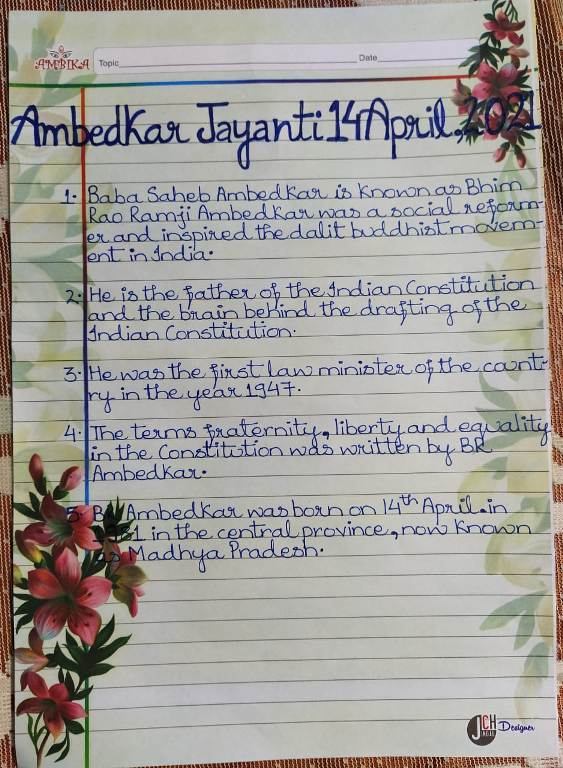 AMBIKA
Topic
Date
Ambedkar Jayanti 14 April, 2021
1. Baba Saheb Ambedkar is known as Bhim
Rao Ramji Ambedkar was a social reform-
er and inspired the dalit buddhist movem-
ent in India.
2. He is the father of the Indian Constitution
and the brain behind the drafting of the
Indian Constitution.
3. He was the first law minister of the count-
ry in the year 1947.
4. The terms fraternity, liberty and equality
in the Constitution was written by BR
Ambedkar.
5. BR Ambedkar was born on 14th April. in
in the central province, now known
as Madhya Pradesh.
JCH
INDIA
Designer